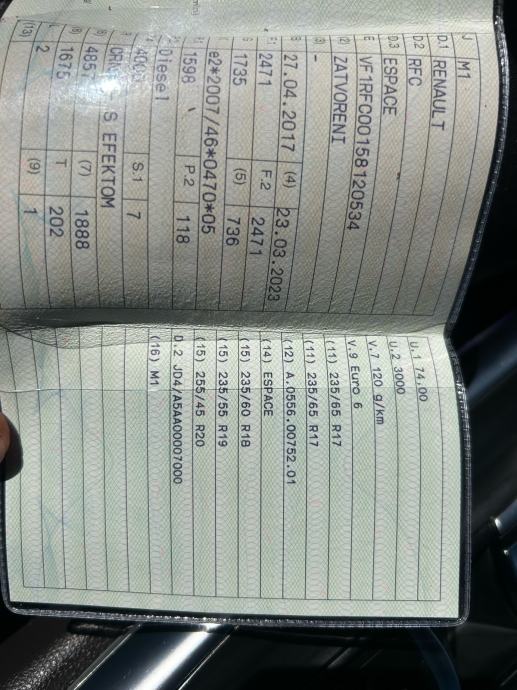 J M1
D.1 RENAULT
D.2 RFC
D.3 ESPACE
E VF1RFC00158120534
(2) ZATVORENI
(3) -
B 27.04.2017 (4) 23.03.2023
F.1 2471 F.2 2471
G 1735 (5) 736
K e2*2007/46*0470*05
P.1 1598 P.2 118
Diesel
S.1 7
S EFEKTOM
(6) 4857 (7) 1888
(8) 1675 T 202
(13) 2 (9) 1
U.1 74,00
U.2 3000
V.7 120 g/km
V.9 Euro 6
(11) 235/65 R17
(11) 235/65 R17
(12) A.0556.00752.01
(14) ESPACE
(15) 235/60 R18
(15) 235/55 R19
(15) 255/45 R20
D.2 JD4/A5AA00007000
(16) M1